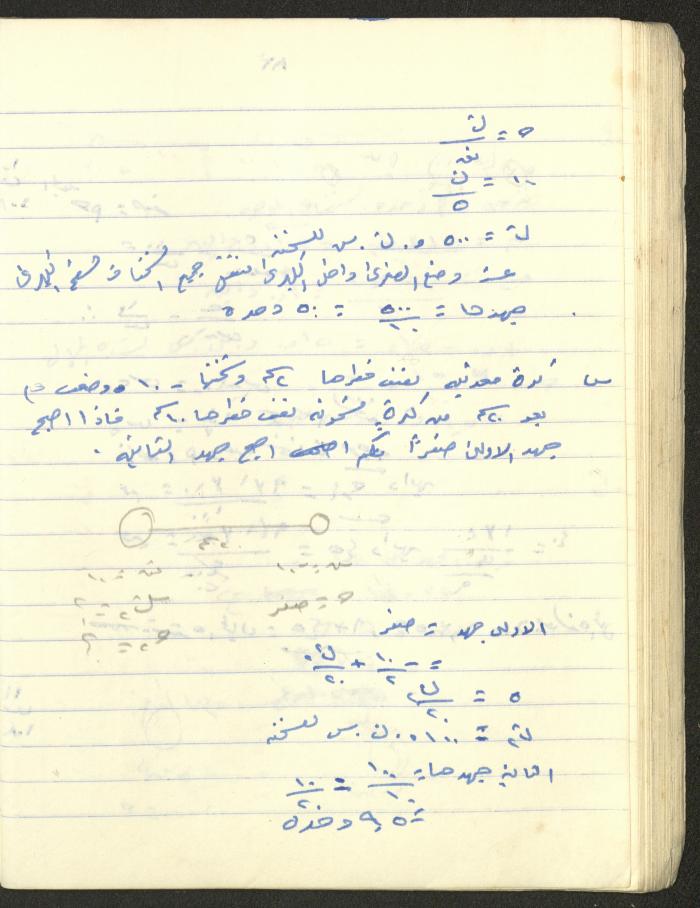 ٨٢
ح = ش / نق
١٠٠ = ش / ٥
ش = ٥٠٠ و. ش. س للشحنة
عند وضع الصغرى داخل الكبرى تنتقل جميع الشحنات لسطح الكبرى
جهدها = ٥٠٠ / ١٠ = ٥٠ وحدة
س كرة معدنية نصف قطرها ٢سم وشحنتها - ١٠ وضعت
بعد ٢٠سم من كرة مشحونة نصف قطرها ١٠سم فاذا اصبح
جهد الاولى صفراً فكم اصبح جهد الثانية .
٢٠سم
ح = صفر
الاولى جهد = صفر
= - ١٠ / ٢ + ش / ٢٠
٥ = ش / ٢٠
ش = ١٠٠ و. ش. س للشحنة
الثانية جهدها = ١٠٠ / ١٠ - ١٠ / ٢٠
= ٩,٥ وحدة